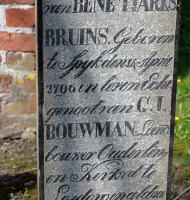 van BENE TJARKS
BRUINS. Geboren
te Spykdam. April
1796 in leven Echt
genoot van C. I.
BOUWMAN. Land
bouwer Ouderling
en Kerkvd te